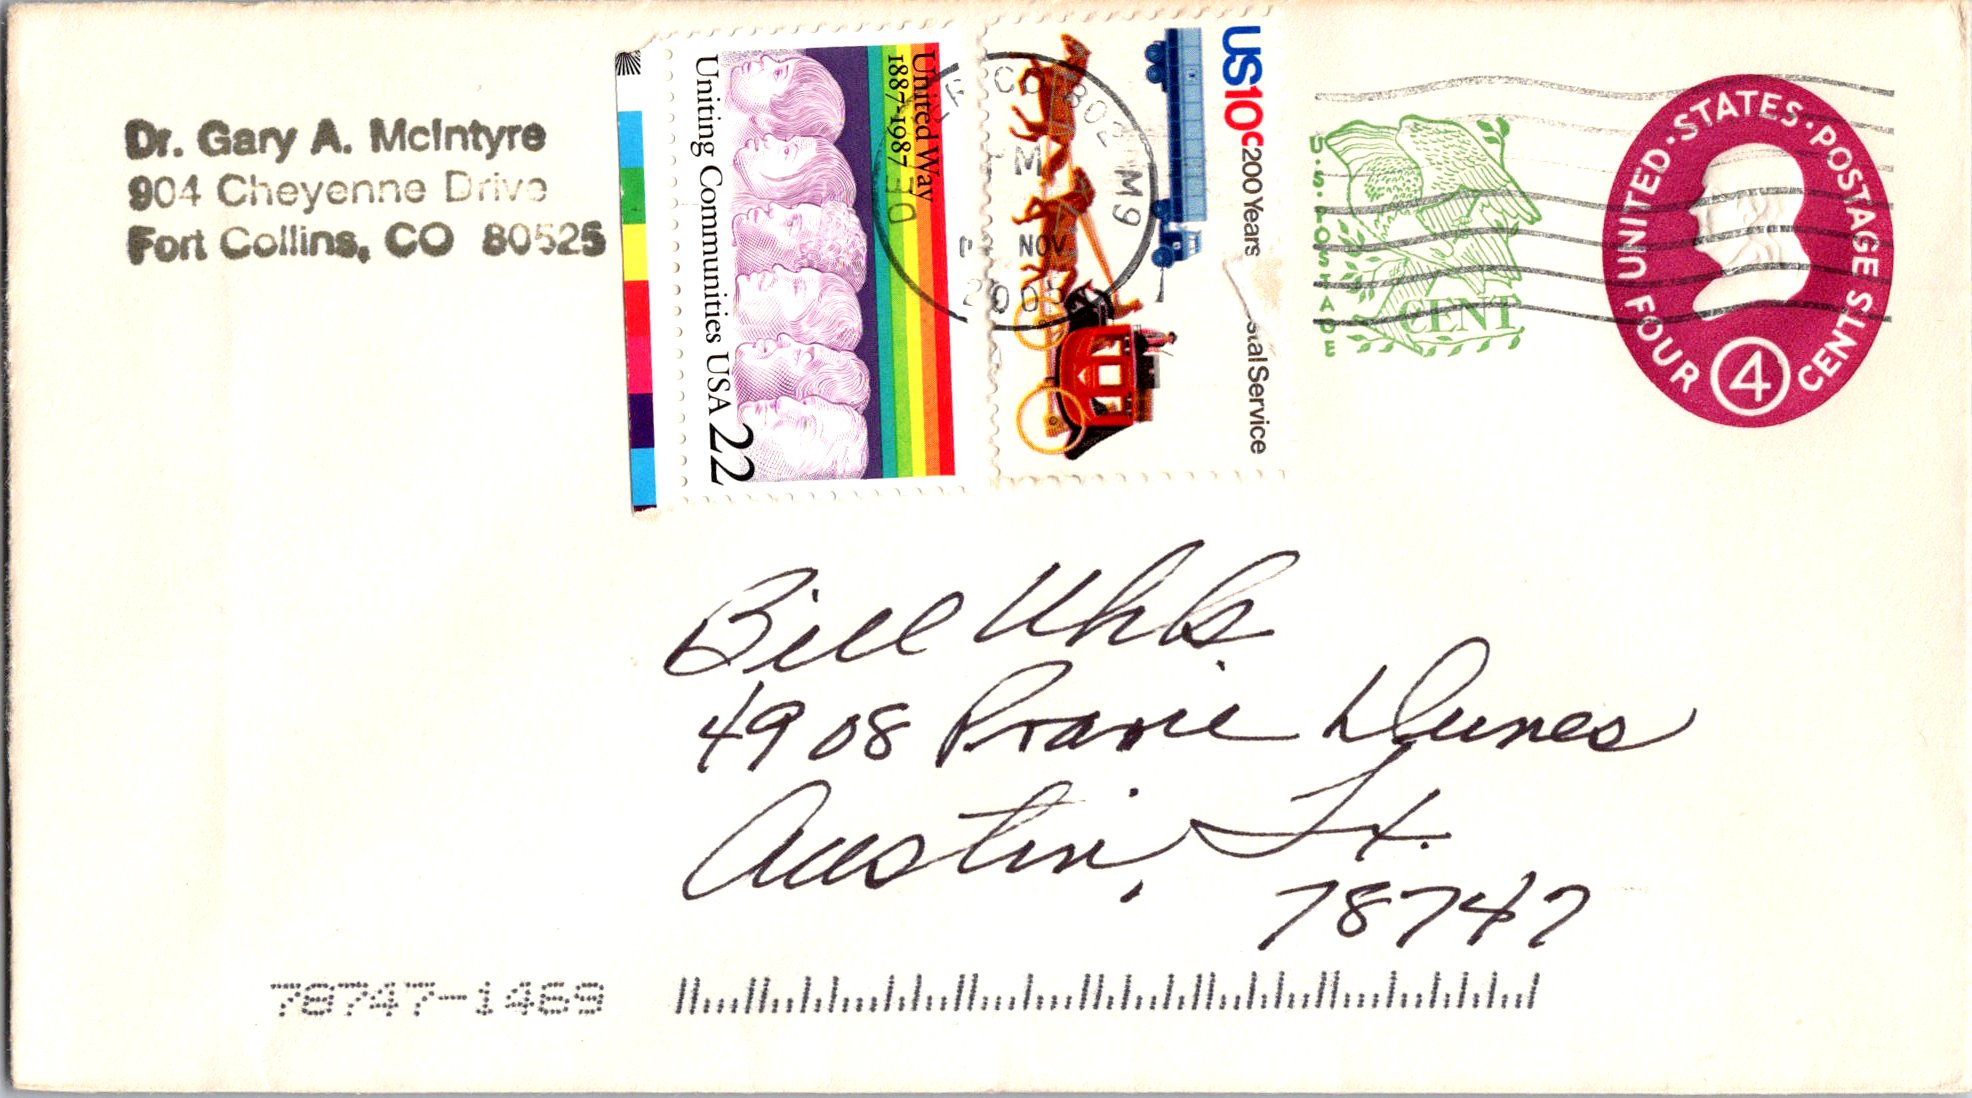 Dr. Gary A. McIntyre
904 Cheyenne Drive
Fort Collins, CO 80525
United Way
1887-1987
Uniting Communities USA 22
US 10c
200 Years
stal Service
CO 802
M9
30
NOV
U.S. POSTAGE
CENT
UNITED · STATES · POSTAGE
FOUR CENTS
4
Bill
4908 Prarie Dunes
Austin, Tx.
78747
78747-1469